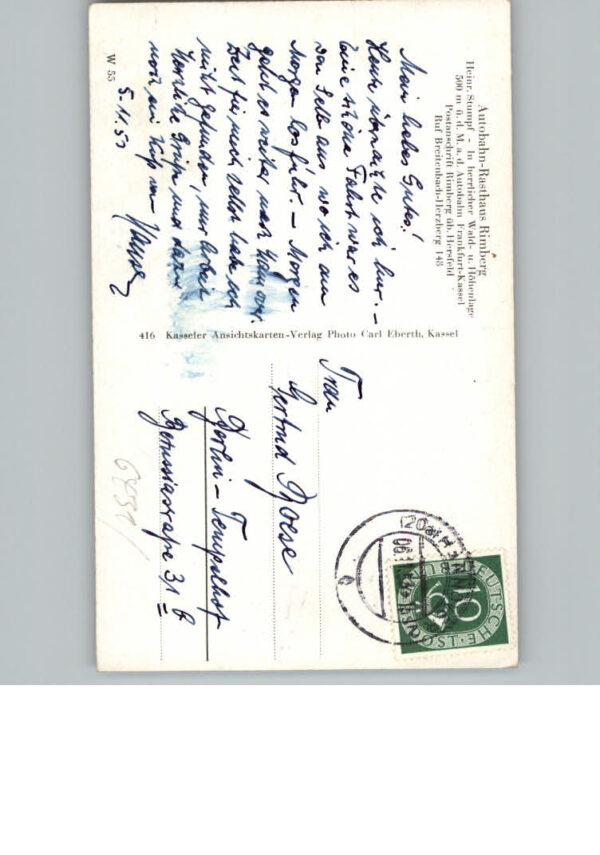 Autobahn-Rasthaus Rimberg
Heinr. Stumpf - In herrlicher Wald- u. Höhenlage
500 m ü. d. M. a. d. Autobahn Frankfurt-Kassel
Postanschrift Rimberg üb. Hersfeld
Ruf Breitenbach-Herzberg 148
Mein liebes Gutes!
Heute übernachte ich hier. –
Eine schöne Fahrt war es
von Selb aus, wo ich am
Morgen losfuhr. – Morgen
geht es weiter nach Hannover.
Zeit für mich selbst habe ich
nicht gefunden, nur Arbeit
Herzliche Grüße und dazu
noch ein Kuß von
5.11.53
W 55
416 Kasseler Ansichtskarten-Verlag Photo Carl Eberth, Kassel
Frau
Gertrud Noese
Berlin – Tempelhof
Borussiastraße 31 B
DEUTSCHE
10